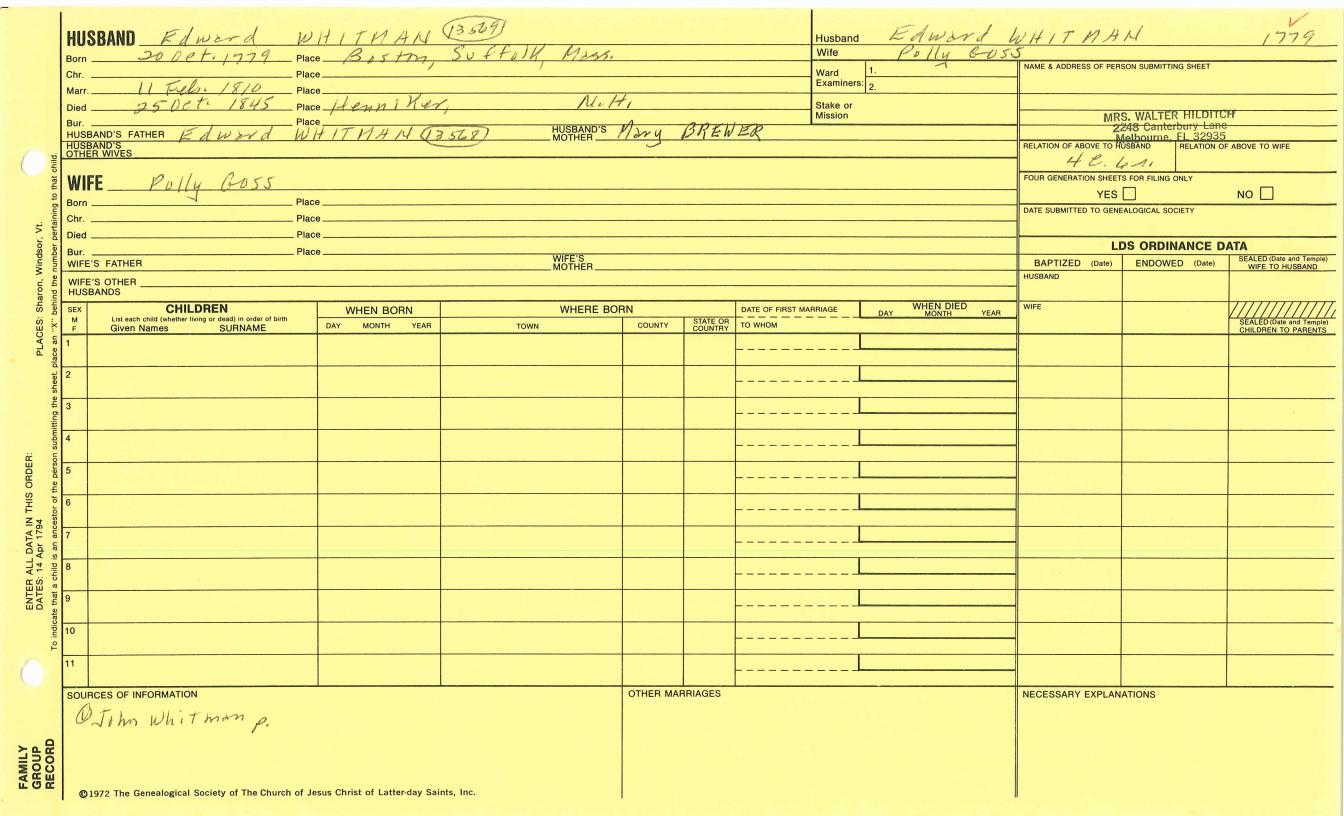 HUSBAND Edward WHITMAN 13569
Born 20 Oct. 1779 Place Boston, Suffolk, Mass.
Chr. Place
Marr. 11 Feb. 1810 Place
Died 25 Oct. 1845 Place Henniker, N.H.
Bur. Place
HUSBAND'S FATHER Edward WHITMAN 13568 HUSBAND'S MOTHER Mary BREWER
HUSBAND'S OTHER WIVES
WIFE Polly Goss
Born Place
Chr. Place
Died Place
Bur. Place
WIFE'S FATHER WIFE'S MOTHER
WIFE'S OTHER HUSBANDS
Husband Edward WHITMAN 1779
Wife Polly Goss
Ward Examiners: 1.
2.
Stake or Mission
NAME & ADDRESS OF PERSON SUBMITTING SHEET
MRS. WALTER HILDITCH
2248 Canterbury Lane
Melbourne, FL 32935
RELATION OF ABOVE TO HUSBAND RELATION OF ABOVE TO WIFE
4 C.
FOUR GENERATION SHEETS FOR FILING ONLY
YES NO
DATE SUBMITTED TO GENEALOGICAL SOCIETY
LDS ORDINANCE DATA
BAPTIZED (Date) ENDOWED (Date) SEALED (Date and Temple) WIFE TO HUSBAND
HUSBAND
WIFE
SEALED (Date and Temple) CHILDREN TO PARENTS
SEX M F
CHILDREN
List each child (whether living or dead) in order of birth
Given Names SURNAME
WHEN BORN
DAY MONTH YEAR
WHERE BORN
TOWN COUNTY STATE OR COUNTRY
DATE OF FIRST MARRIAGE
TO WHOM
WHEN DIED
DAY MONTH YEAR
1
2
3
4
5
6
7
8
9
10
11
SOURCES OF INFORMATION
① John Whitman p.
OTHER MARRIAGES
NECESSARY EXPLANATIONS
©1972 The Genealogical Society of The Church of Jesus Christ of Latter-day Saints, Inc.
FAMILY GROUP RECORD
ENTER ALL DATA IN THIS ORDER:
DATES: 14 Apr 1794 PLACES: Sharon, Windsor, Vt.
To indicate that a child is an ancestor of the person submitting the sheet, place an "X" behind the number pertaining to that child.